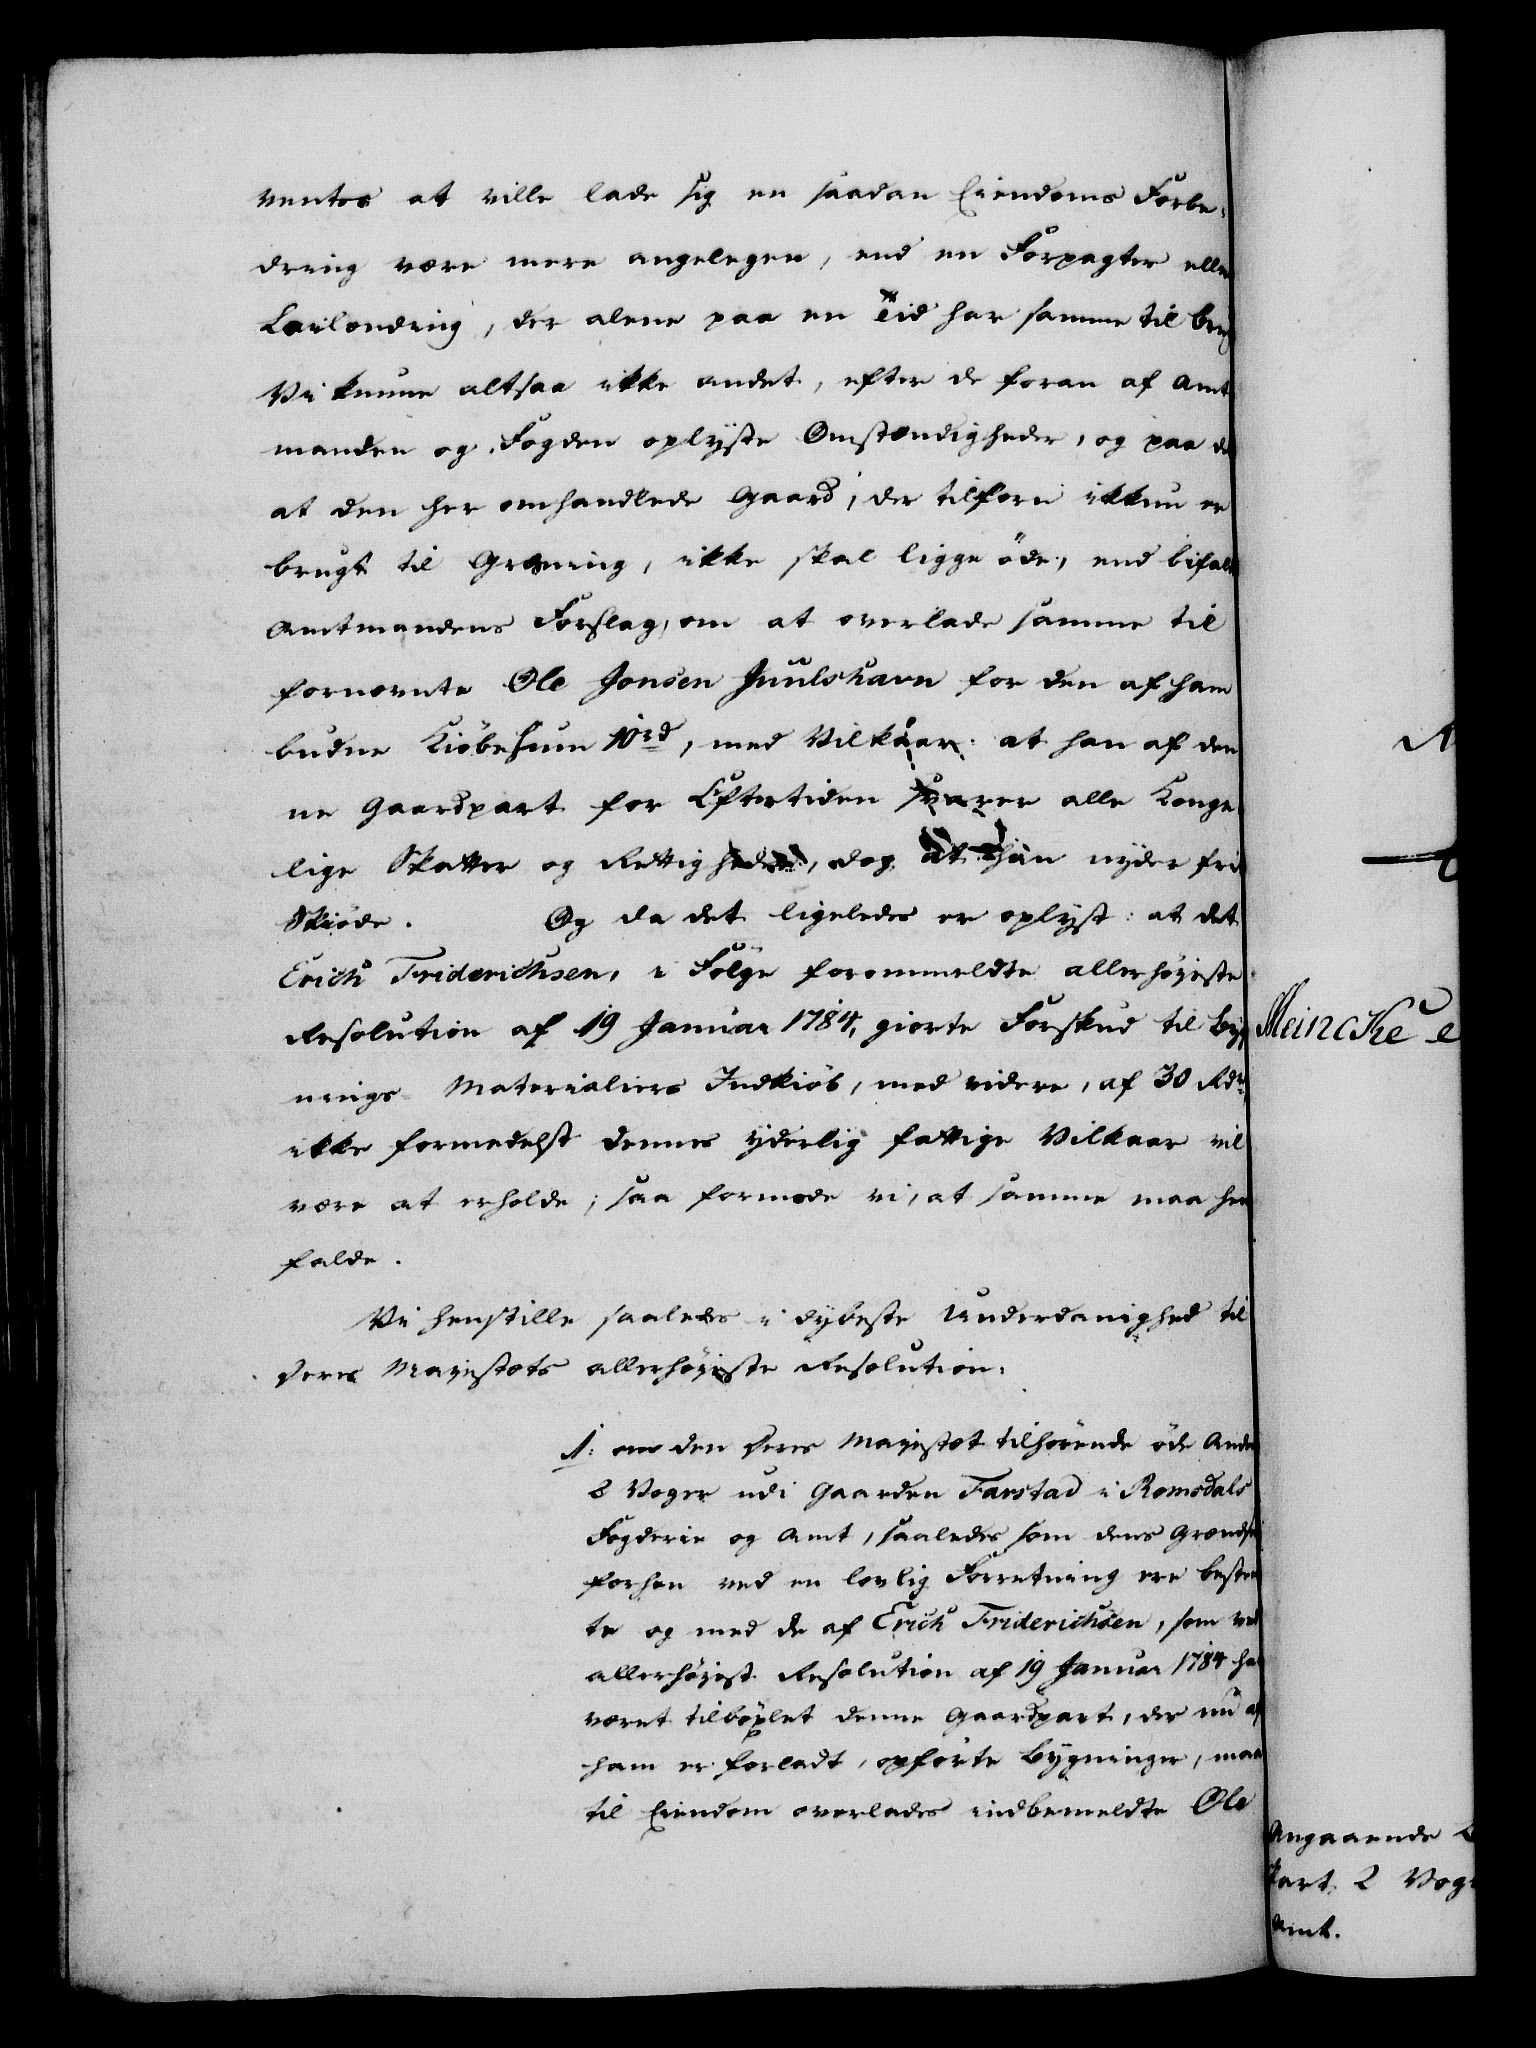 ventes at ville lade sig en saadan Eiendoms Forbe-
dring være mere angelegen, end en Forpagter eller
Leilænding, der alene paa en Tid har samme til brug
Vi kunne altsaa ikke andet, efter de foran af Amt
manden og Fogden oplyste Omstændigheder, og paa det
at den her omhandlede Gaard, der tilforn ikkun er
brugt til Græsning, ikke skal ligge öde, end bifalde
Amtmandens Forslag, om at overlade samme til
fornævnte Ole Jonsen Juulshavn for den af ham
budne Kiöbesum 10 rd, med Vilkaar: at han af den
ne Gaardpart for Eftertiden svarer alle Konge
lige Skatter og Rettigheder, dog at han nyder frit
Skiöde. Og da det ligeledes er oplyst: at det
Erich Friderichsen, i Fölge forommeldte allerhöieste
Resolution af 19 Januar 1784, giorte Forskud til Byg
nings Materialiers Indkiöb, med videre, af 30 Rdr,
ikke formedelst dennes yderlig fattige Vilkaar vil
være at erholde; saa formode vi, at samme maa hen
falde.
Vi henstille saaledes i dybeste Underdanighed til
Deres Majestæts allerhöieste Resolution:
1: om den Deres Majestæt tilhörende öde Andel
2 Voger udi Gaarden Farstad i Romsdals
Fogderie og Amt, saaledes som dens Grændser
forhen ved en lovlig Forretning ere bestem
te og med de af Erich Friderichsen, som ved
allerhöiest Resolution af 19 Januar 1784 har
været tilböxlet denne Gaardpart, der nu af
ham er forladt, opförte Bygninger, maa
til Eiendom overlades indbemeldte Ole
Meincke
Angaaende
Part 2 Voger
Amt.